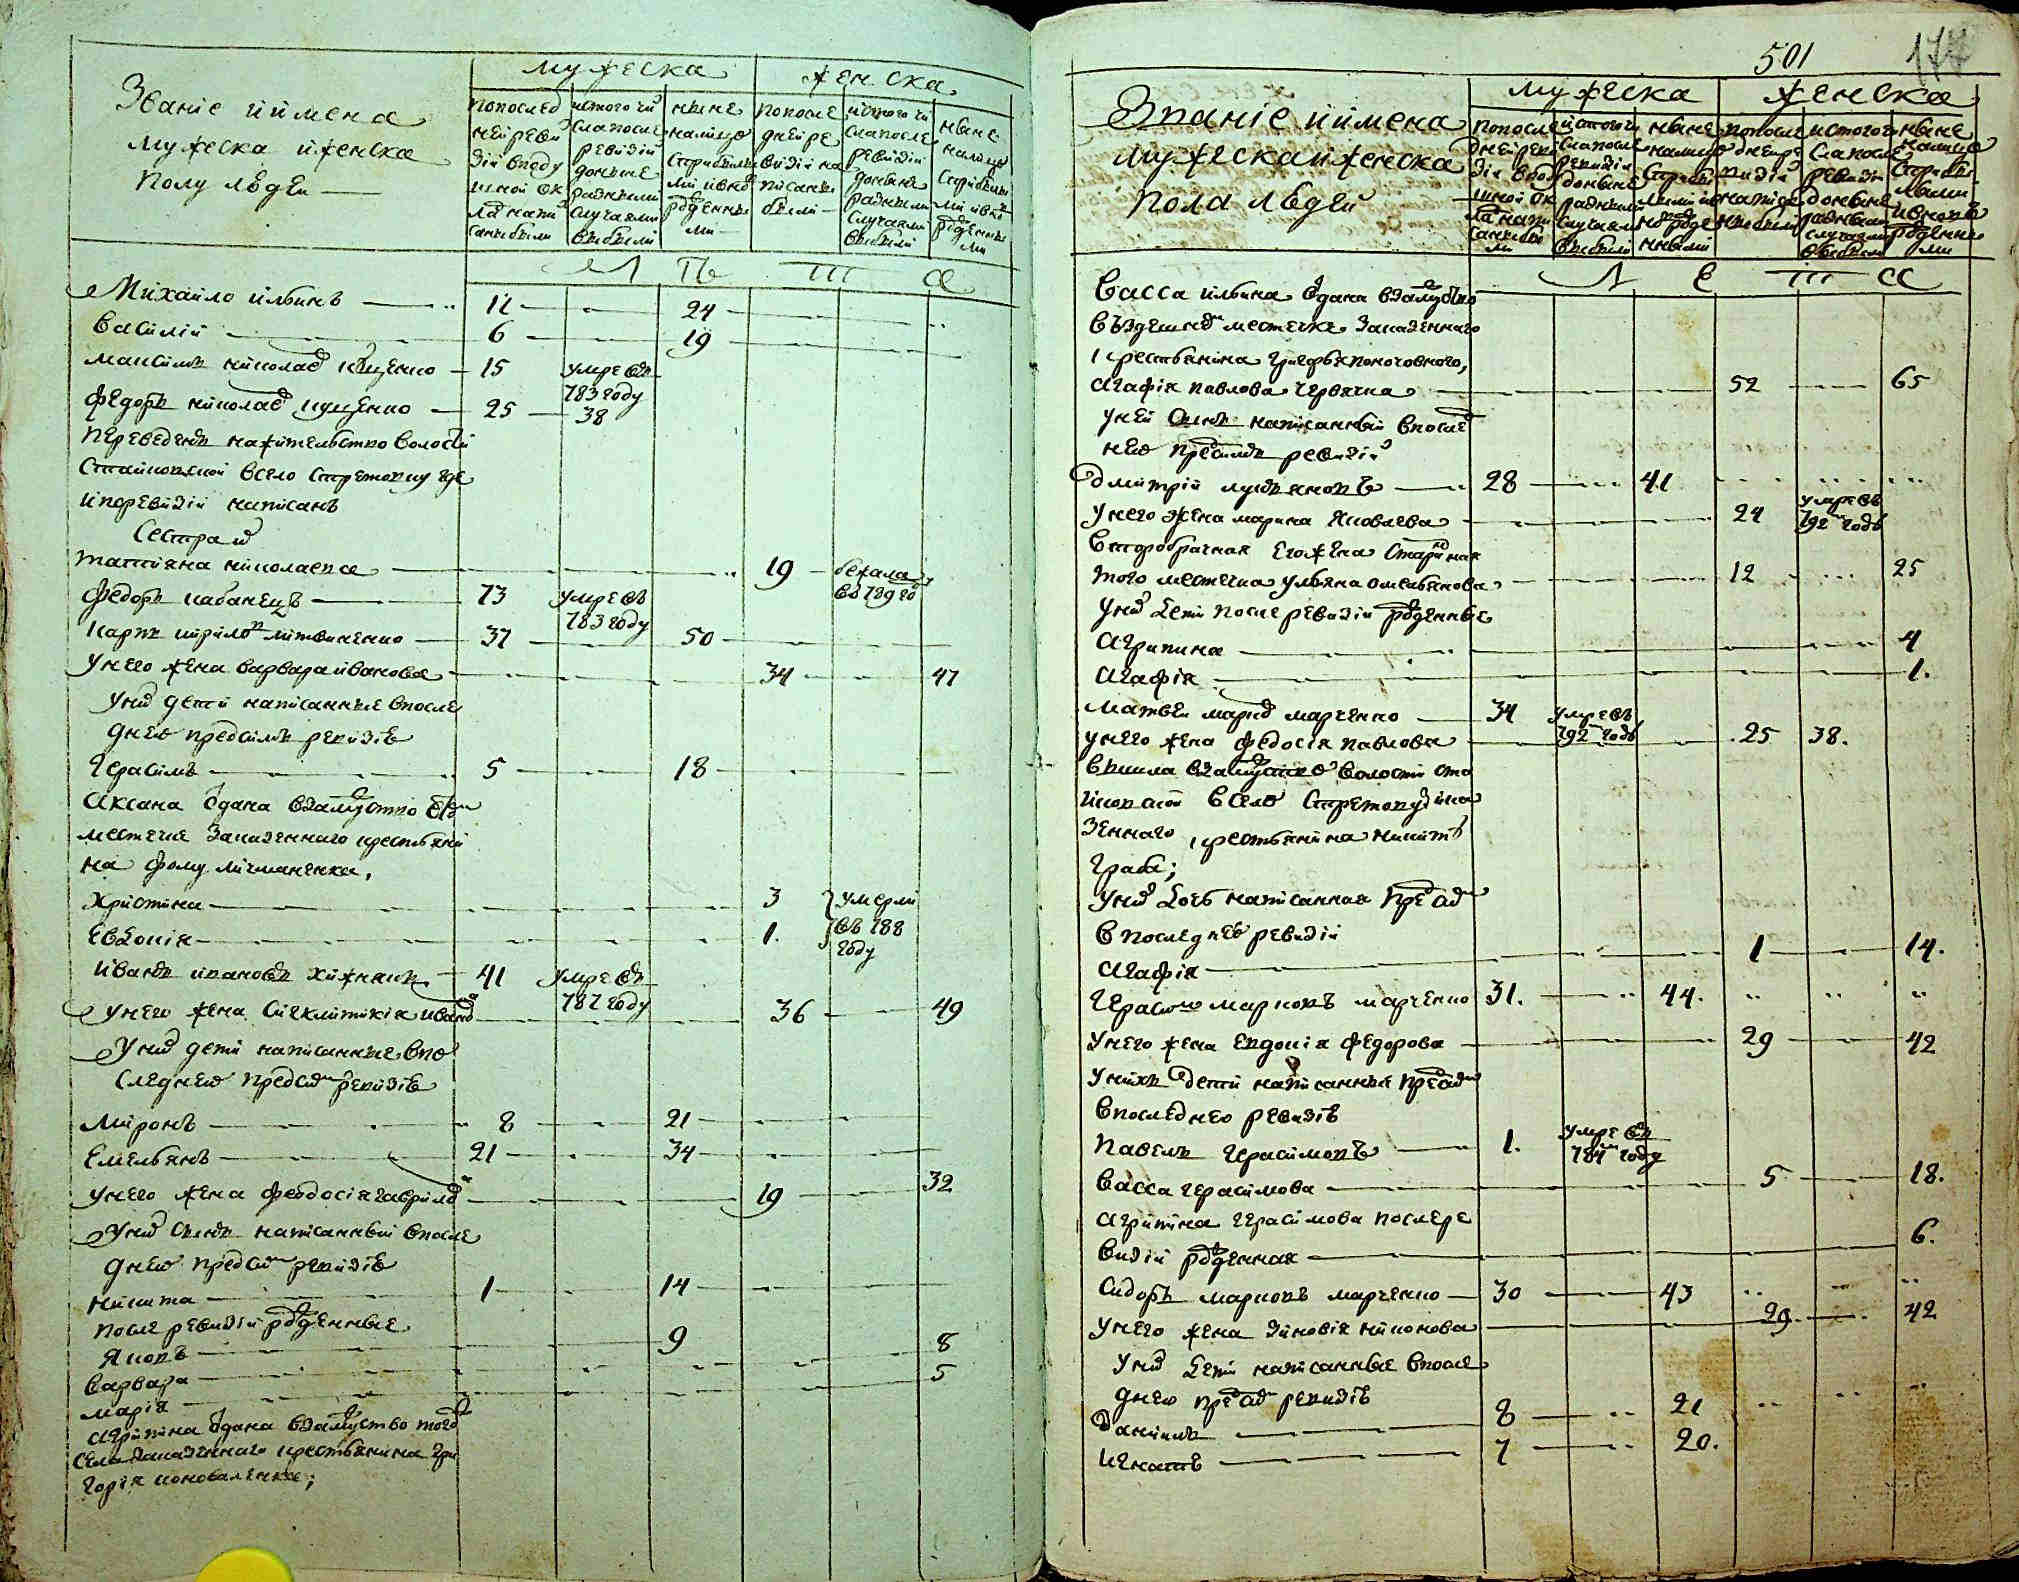 Званіе и имена
мужеска и женска
полу людей
мужеска
женска
по послед
ней реви
зіи в поду
шной ок
ладъ напи
саны были
ис того чи
сла после
ревизіи
до ныне
разными
случаями
выбыли
ныне
на лицо
с прибылы
ми и вно
рожденны
ми
по после
дней ре
визіи на
писаны
были
ис того чи
сла после
ревизіи
до ныне
разными
случаями
выбыли
ныне
на лицо
с прибылы
ми и вно
рожденны
ми
Михайло ильинъ 11 24
Василій 6 19
Максимъ николаевъ 15 умре въ
783 году
Федоръ николаевъ 25 38
переведенъ на жительство волости
в село где
и по ревизіи написанъ
Сестра
татіяна николаева 19 бежала
въ 789 го
Федоръ кабанецъ 73 умре въ
783 году
Карпъ кирилов литвиненко 37 50
у него жена варвара иванова 34 47
у них дети написанные в после
днею пред сим ревизію
Герасимъ 5 18
Аксана отдана в замужство
местечка казенного крестьяни
на фому личманенка,
Христина 3 умерли
Евдокія 1. въ 788
году
Иванъ ивановъ хижнякъ 41 умре въ
787 году
у него жена иванова 36 49
у них дети написанные в по
следнею пред сим ревизію
Миронъ 8 21
Емельянъ 21 34
у него жена феодосія гаврилова 19 32
у них сынъ написанный в после
днею пред сим ревизію
Никита 1 14
после ревизіи рожденные
Яковъ 9
Варвара 8
Марія 5
Агрипина отдана в замужство того
села казенного крестьянина гри
горія коноваленка;
501
174
Званіе и имена
мужеска и женска
пола людей
мужеска
женска
по после
дней реви
зіи в поду
шной ок
ладъ напи
саны бы
ли
ис того чи
сла после
ревизіи
до ныне
разными
случаями
выбыли
ныне
на лицо
с прибы
лыми и в
но рожде
нными
по после
дней ре
визіи
написа
ны были
ис того чи
сла после
ревизіи
до ныне
разными
случаями
выбыли
ныне
на лицо
с прибы
лыми
и вновь
рожденны
ми
Васса ильина отдана в замужство
в здешнем местечке казенного
крестьянина
Агафія павлова червячка 52 65
у ней сынъ написанный в послед
нею пред сим ревизію
Дмитрій лукьяновъ 28 41
у него жена марина яковлева 24 умре въ
792 годе
второбрачная его жена
того местечка ульяна омельянова 12 25
у них дети после ревизіи рожденные
Агрипина 4
Агафія 1.
Матвей марков марченко 34 умре въ
792 годе
у него жена федосія павлова 25 38.
вышла в замужство волости
в село ка
зенного крестьянина никиту
граба;
у них дочь написанная пред сим
в последнею ревизіи
Агафія 1 14.
Герасим марковъ марченко 31. 44.
у него жена евдокія федорова 29 42
у нихъ дети написанныя пред сим
в последнею ревизію
Павелъ герасимовъ 1. умре въ
784 году
Васса герасимова 5 18.
Агрипина герасимова после ре
визіи рожденная 6.
Сидоръ марковъ марченко 30 43
у него жена зиновія никонова 29 42
у них дети написанные в после
днею пред сим ревизію
Данилъ 8 21
Игнатъ 7 20.